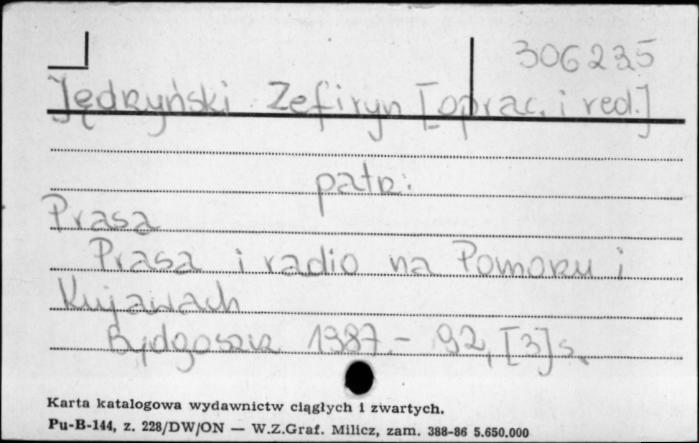 306235
Jędryński Zefiryn [oprac. i red.]
patrz:
Prasa
Prasa i radio na Pomorzu i
Kujawach
Bydgoszcz 1987. - 92, [3] s.
Karta katalogowa wydawnictw ciągłych i zwartych.
Pu-B-144, z. 228/DW/ON — W.Z.Graf. Milicz, zam. 388-86 5.650.000